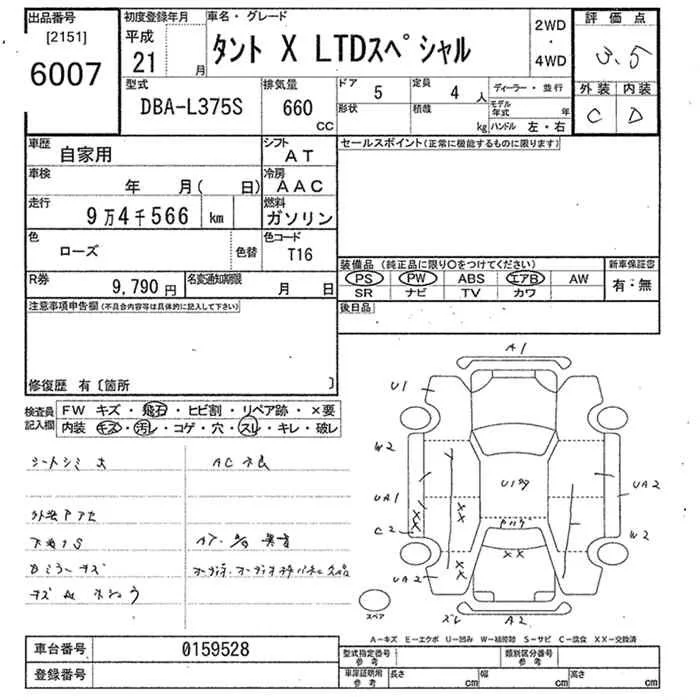 出品番号 初度登録年月 車名・グレード 2WD 評価点
[2151] 平成 タント X LTDスペシャル ・ 3.5
6007 21 月 4WD 外装 内装
型式 排気量 ドア 5 定員 4 人 ディーラー・並行 C D
DBA-L375S 660 cc 形状 積載 kg モデル年式 年 ハンドル 左・右
車歴 自家用 シフト AT セールスポイント(正常に機能するものに限ります)
車検 年 月( 日) 冷房 AAC
走行 9万4千566 km 燃料 ガソリン
色 ローズ 色替 色コード T16 装備品 (純正品に限り○をつけてください) 新車保証書
R券 9,790円 名変通知期限 月 日 PS PW ABS エアB AW 有・無
SR ナビ TV カワ
注意事項申告欄(不具合内容等は具体的に記入して下さい) 後日品
修復歴 有〔箇所 〕
検査員記入欄 FW キズ・飛石・ヒビ割・リペア跡・×要
内装 キズ・汚レ・コゲ・穴・スレ・キレ・破レ
シートシミ大 AC不良
下廻りS
A1
U1
W2
UA1 UA2
C2 W2
UA2
XX
A2
スペア
A−キズ E−エクボ U−凹み W−補修跡 S−サビ C−腐食 XX−交換済
車台番号 0159528 型式指定番号 参考 類別区分番号 参考
登録番号 車庫証明用 参考 長さ cm 幅 cm 高さ cm